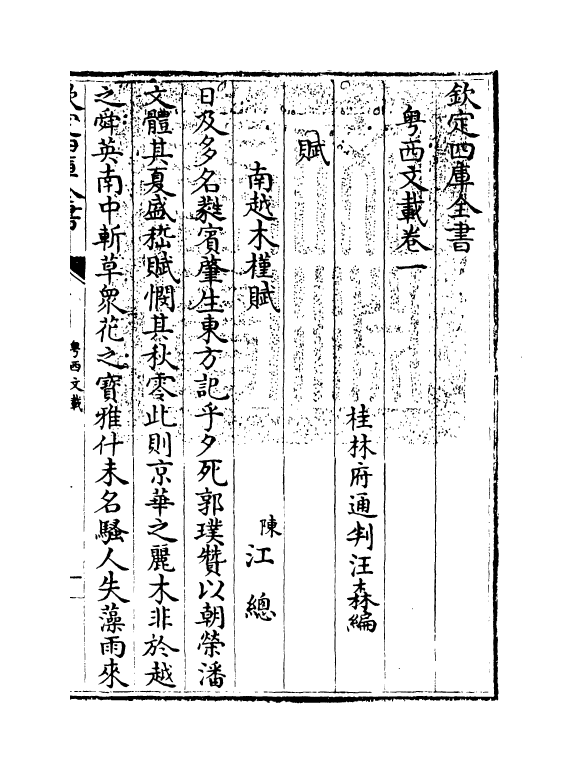 欽定四庫全書
粤西文載卷一
桂林府通判汪森編
賦
南越木槿賦
陳江總
日及多名蕤賓肇生東方記乎夕死郭璞贊以朝榮潘
文體其夏盛嵇賦憫其秋零此則京華之麗木非於越
之舜英南中斬草衆花之寳雅什未名騷人失藻雨來
欽定四庫全書
粤西文載
一